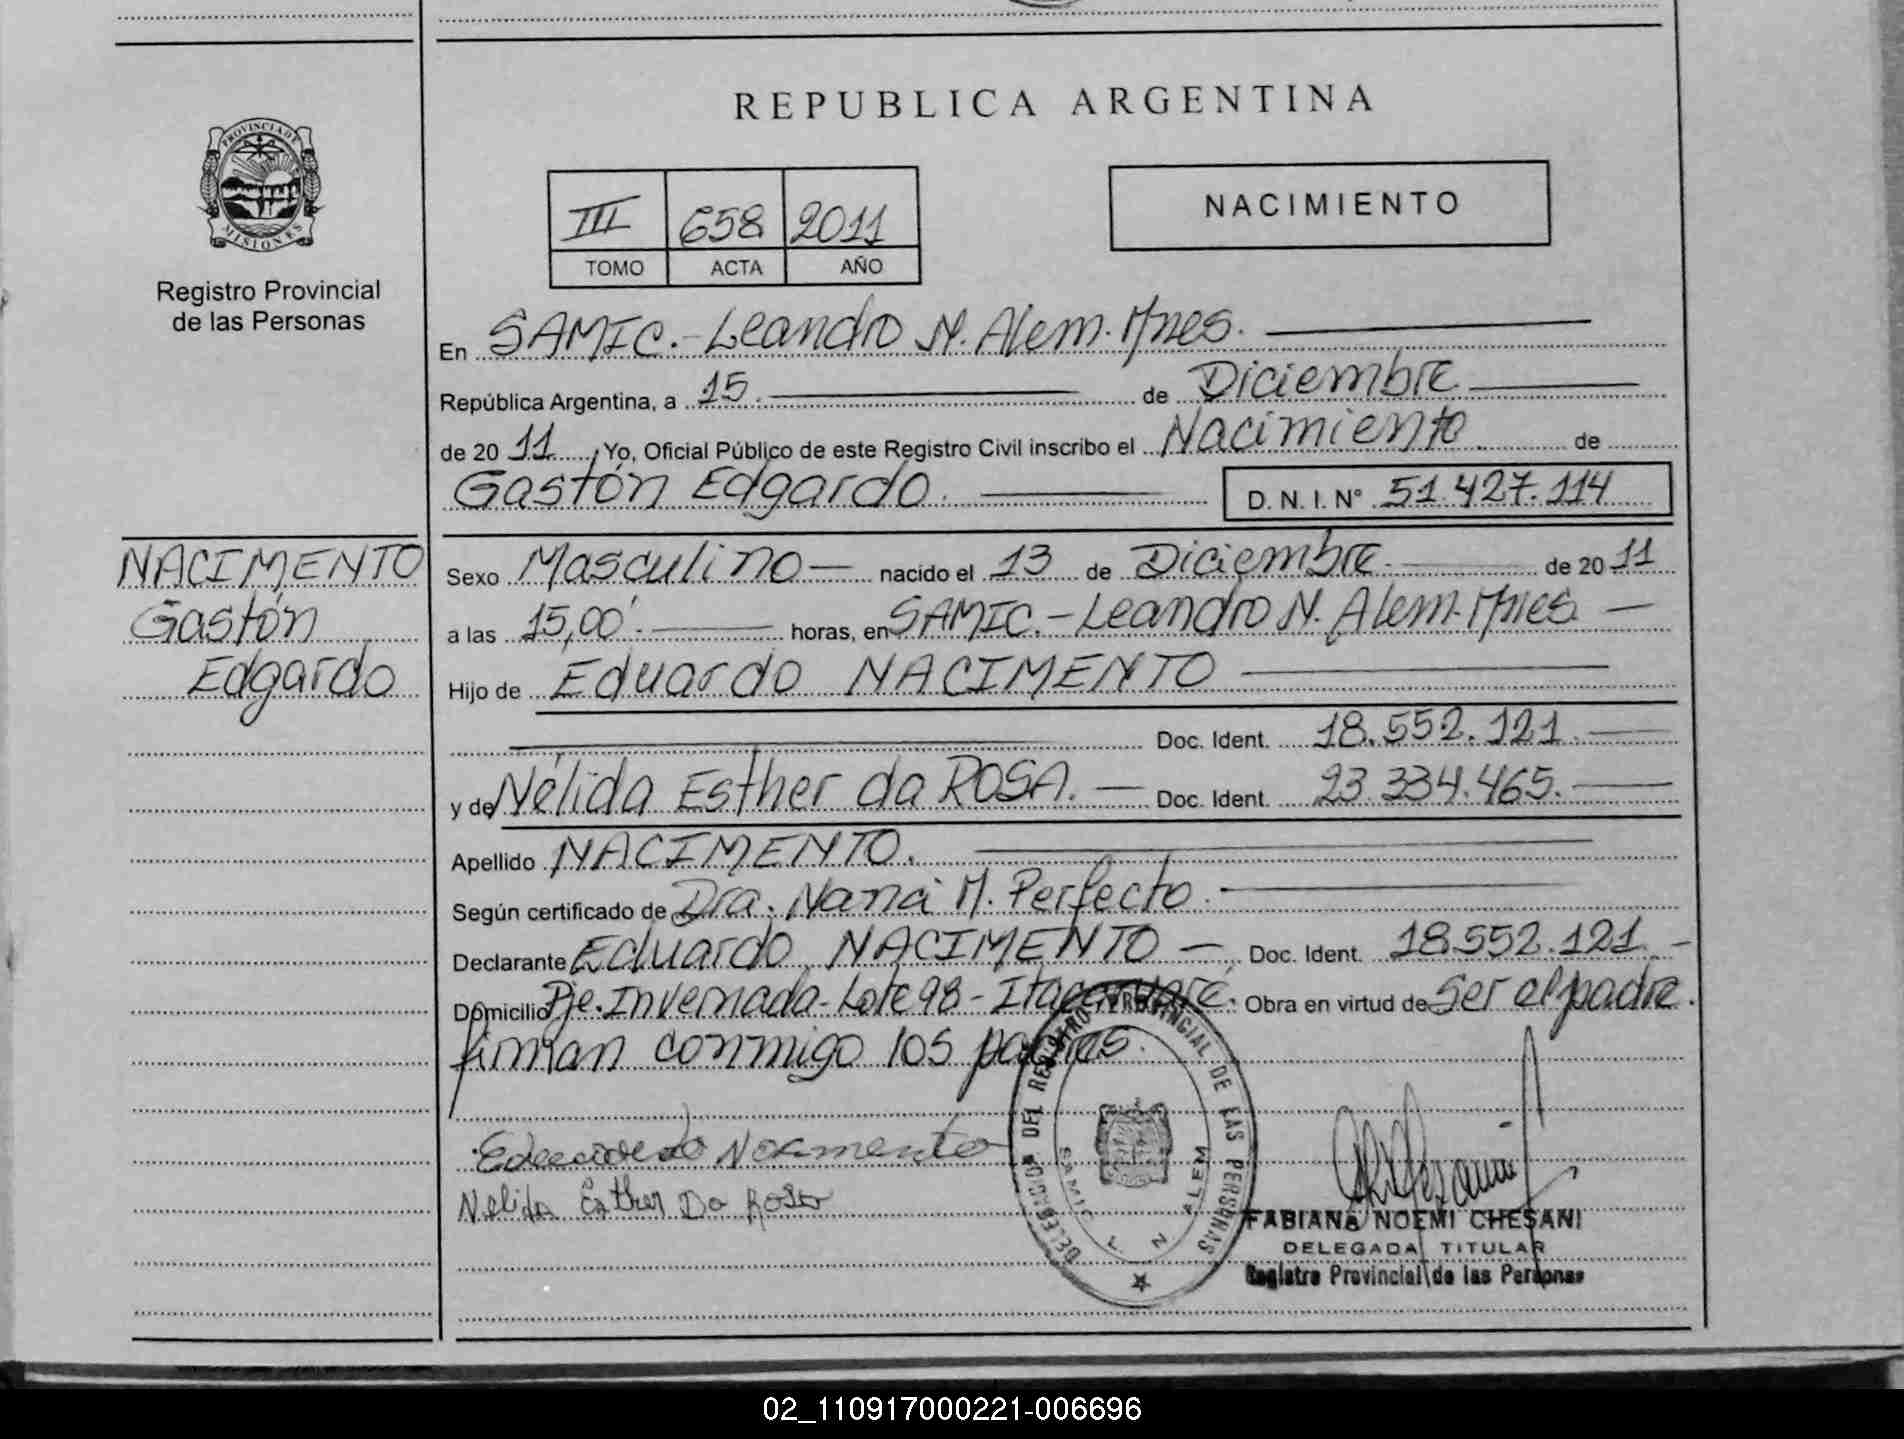 REPUBLICA ARGENTINA
PROVINCIA DE
MISIONES
Registro Provincial
de las Personas
III 658 2011
TOMO ACTA AÑO
NACIMIENTO
En SAMIC.- Leandro N. Alem. Mnes.
República Argentina, a 15. de Diciembre
de 20 11 , Yo, Oficial Público de este Registro Civil inscribo el Nacimiento de
Gastón Edgardo. D. N. I. N° 51.427.114
NACIMENTO
Gastón
Edgardo
Sexo Masculino nacido el 13 de Diciembre. de 20 11
a las 15,00'. horas, en SAMIC.- Leandro N. Alem. Mnes
Hijo de Eduardo NACIMENTO
Doc. Ident. 18.552.121.
y de Nélida Esther da ROSA. Doc. Ident. 23.334.465.
Apellido NACIMENTO.
Según certificado de Dra. Nana M. Perfecto.
Declarante Eduardo NACIMENTO Doc. Ident. 18.552.121.
Domicilio Pje. Invernada- Lote 98- Itacaruaré. Obra en virtud de Ser el padre.
firman conmigo los padres.
Nelida Esther Da Rosa
DELEGACION DEL REGISTRO PROVINCIAL DE LAS PERSONAS
SAMIC L. N. ALEM
FABIANA NOEMI CHESANI
DELEGADA TITULAR
Registro Provincial de las Personas
02_110917000221-006696